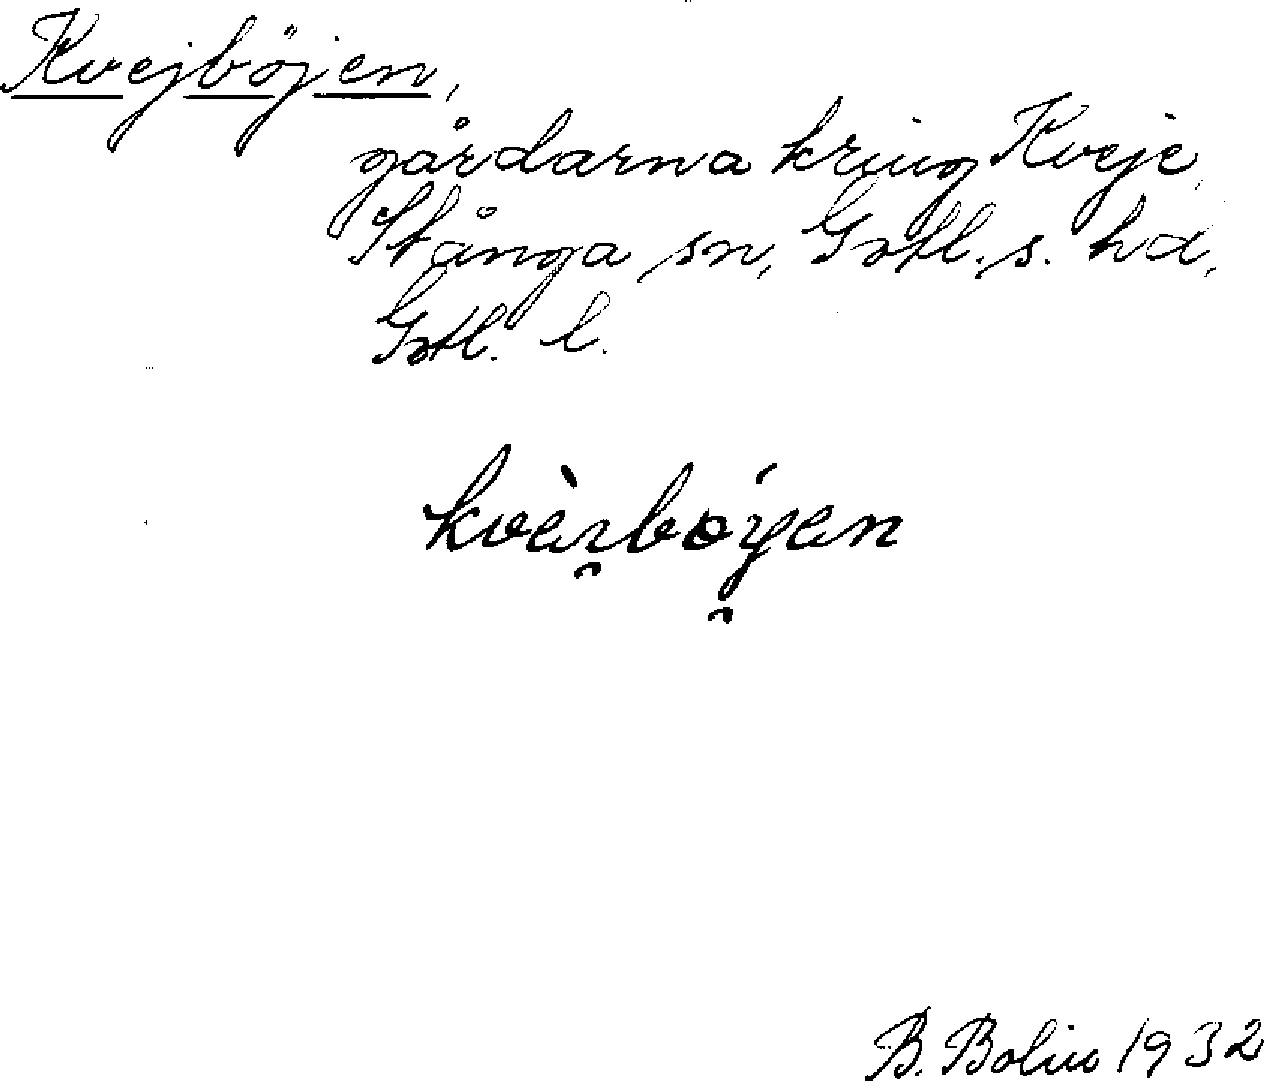 Kvejböjen,
gårdarna kring Kveje,
Stånga sn, Gotl. s. hd,
Gotl. l.
B. Bolin 1932